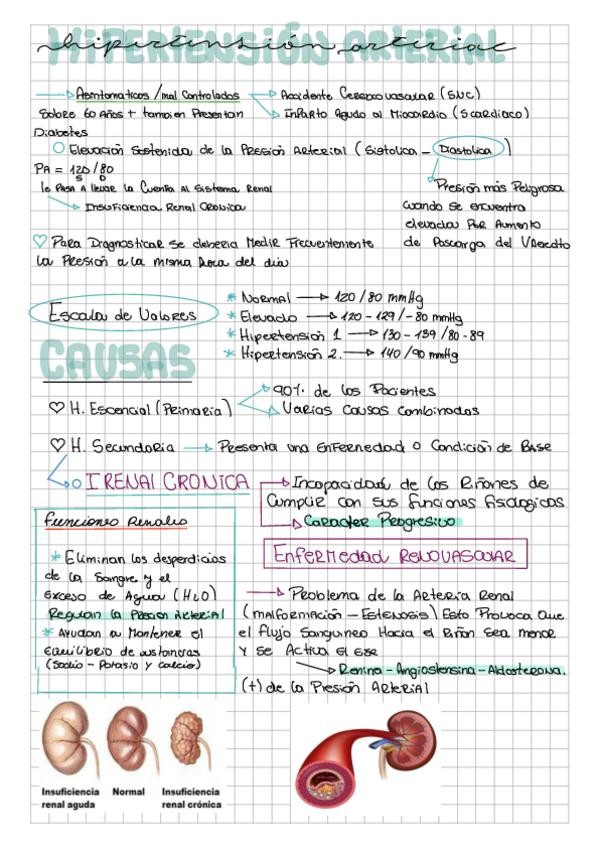 Hipertensión Arterial
Asintomaticos / mal Controlados → Accidente Cerebrovascular (SNC)
Sobre 60 años + tambien Presentan → Infarto Agudo al Miocardio (S cardiaco)
Diabetes
Elevación Sostenida de la Presión Arterial (Sistolica - Diastolica)
PA = 120 / 80
S D
le Pasa A llevar la Cuenta Al Sistema Renal
Insuficiencia Renal Cronica
Presión más Peligrosa
cuando se encuentra
elevada Por Aumento
de Poscarga del V Derecho
♡ Para Diagnosticar Se deberia Medir Frecuentemente
la Presión a la misma hora del dia
Escala de Valores
* Normal → 120 / 80 mmHg
* Elevado → 120 - 129 / - 80 mmHg
* Hipertensión 1 → 130 - 139 / 80 - 89
* Hipertensión 2. → 140 / 90 mmHg
CAUSAS
♡ H. Escencial (Primaria) → 90%. de los Pacientes
→ Varias Causas Combinadas
♡ H. Secundaria → Presenta una Enfermedad o Condición de Base
I RENAL CRONICA → Incapacidad de los Riñones de
Cumplir con sus funciones fisologicas
→ Caracter Progresivo
Funciones Renales
* Eliminan los desperdicios
de la Sangre y el
Exceso de Agua (H2O)
Regulan la Presion Arterial
* Ayudan a Mantener el
Equilibrio de sustancias
(Sodio - Potasio y calcio)
Enfermedad RENOVASCULAR
→ Problema de la Arteria Renal
(malformación - Estenosis) Esto Provoca Que
el flujo Sanguineo Hacia el Riñon Sea menor
y se Activa el Eje
→ Renina - Angiostensina - Aldosterona.
(+) de la Presión Arterial
Insuficiencia
renal aguda
Normal
Insuficiencia
renal crónica